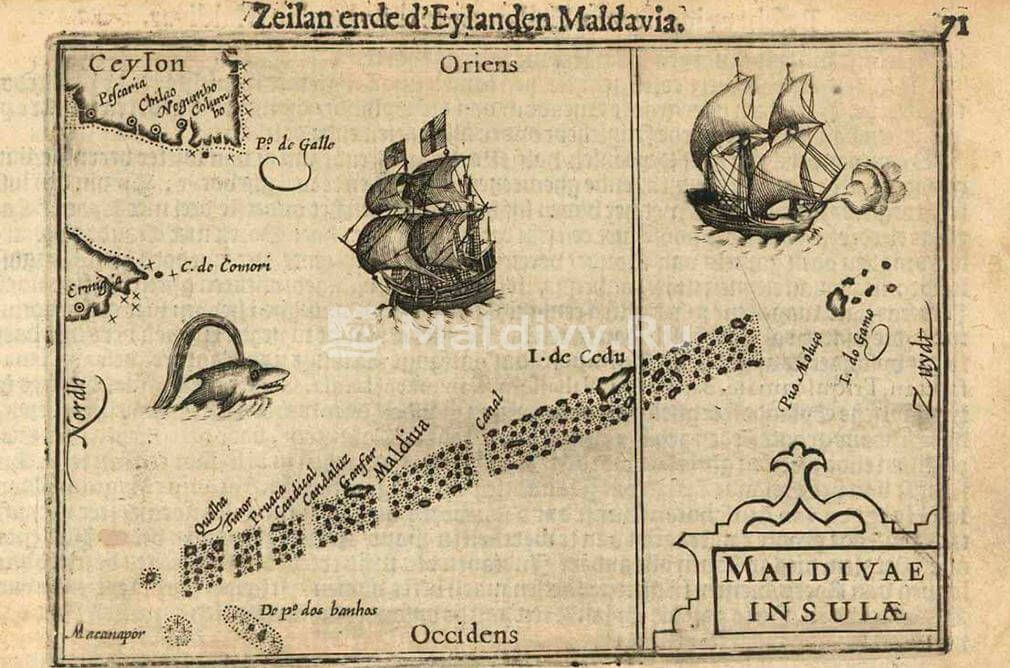 Zeilan ende d'Eylanden Maldavia.
71
Ceylon
Oriens
Pescaria
Chilao
Negumbo
Colum
bo
Pº. de Galle
C. de Comori
Nordh
Maldivy.Ru
I. de Cedu
Puo Moluço
I. do Gamo
Zuydt
Canal
Maldiua
Candaluz
Candical
Pruaca
Timor
Quelha
De pº. dos banhos
Macanapor
Occidens
MALDIVAE
INSULÆ